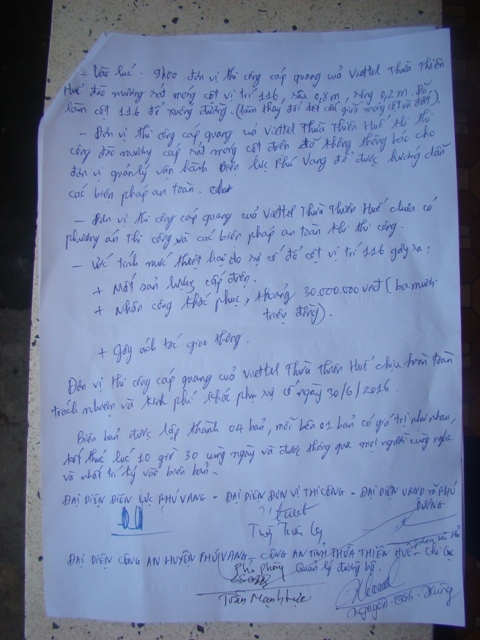 - Vào lúc: 9h00 đơn vị thi công cáp quang của Viettel Thừa Thiên
Huế đào mương sát móng cột vị trí 116, sâu 0,8 m, rộng 0,2 m. Đã
làm cột 116 đổ xuống đường. (làm thay đổi kết cấu giữa móng cột và đất).
- Đơn vị thi công cáp quang của Viettel Thừa Thiên Huế khi thi
công đào mương cáp sát móng cột điện đã không thông báo cho
đơn vị quản lý vận hành Điện lực Phú Vang để được hướng dẫn
các biện pháp an toàn.
- Đơn vị thi công cáp quang của Viettel Thừa Thiên Huế chưa có
phương án thi công và các biện pháp an toàn khi thi công.
- Ước tính mức thiệt hại do sự cố đổ cột vị trí 116 gây ra:
+ Mất sản lượng cấp điện.
+ Nhân công khắc phục, khoảng 30.000.000 vnđ (ba mươi
triệu đồng).
+ Gây ách tắc giao thông.
Đơn vị thi công cáp quang của Viettel Thừa Thiên Huế chịu hoàn toàn
trách nhiệm và kinh phí khắc phục sự cố ngày 30/6/2016.
Biên bản được lập thành 04 bản, mỗi bên 01 bản có giá trị như nhau,
kết thúc lúc 10 giờ 30 cùng ngày và được thông qua mọi người cùng nghe
và nhất trí ký vào biên bản.
ĐẠI DIỆN ĐIỆN LỰC PHÚ VANG - ĐẠI DIỆN ĐƠN VỊ THI CÔNG - ĐẠI DIỆN UBND XÃ PHÚ
DƯƠNG
ĐẠI DIỆN CÔNG AN HUYỆN PHÚ VANG - CÔNG AN TỈNH THỪA THIÊN HUẾ - Chi cục
Phó phòng Quản lý đường bộ.
Trần Mạnh
Nguyễn Hùng